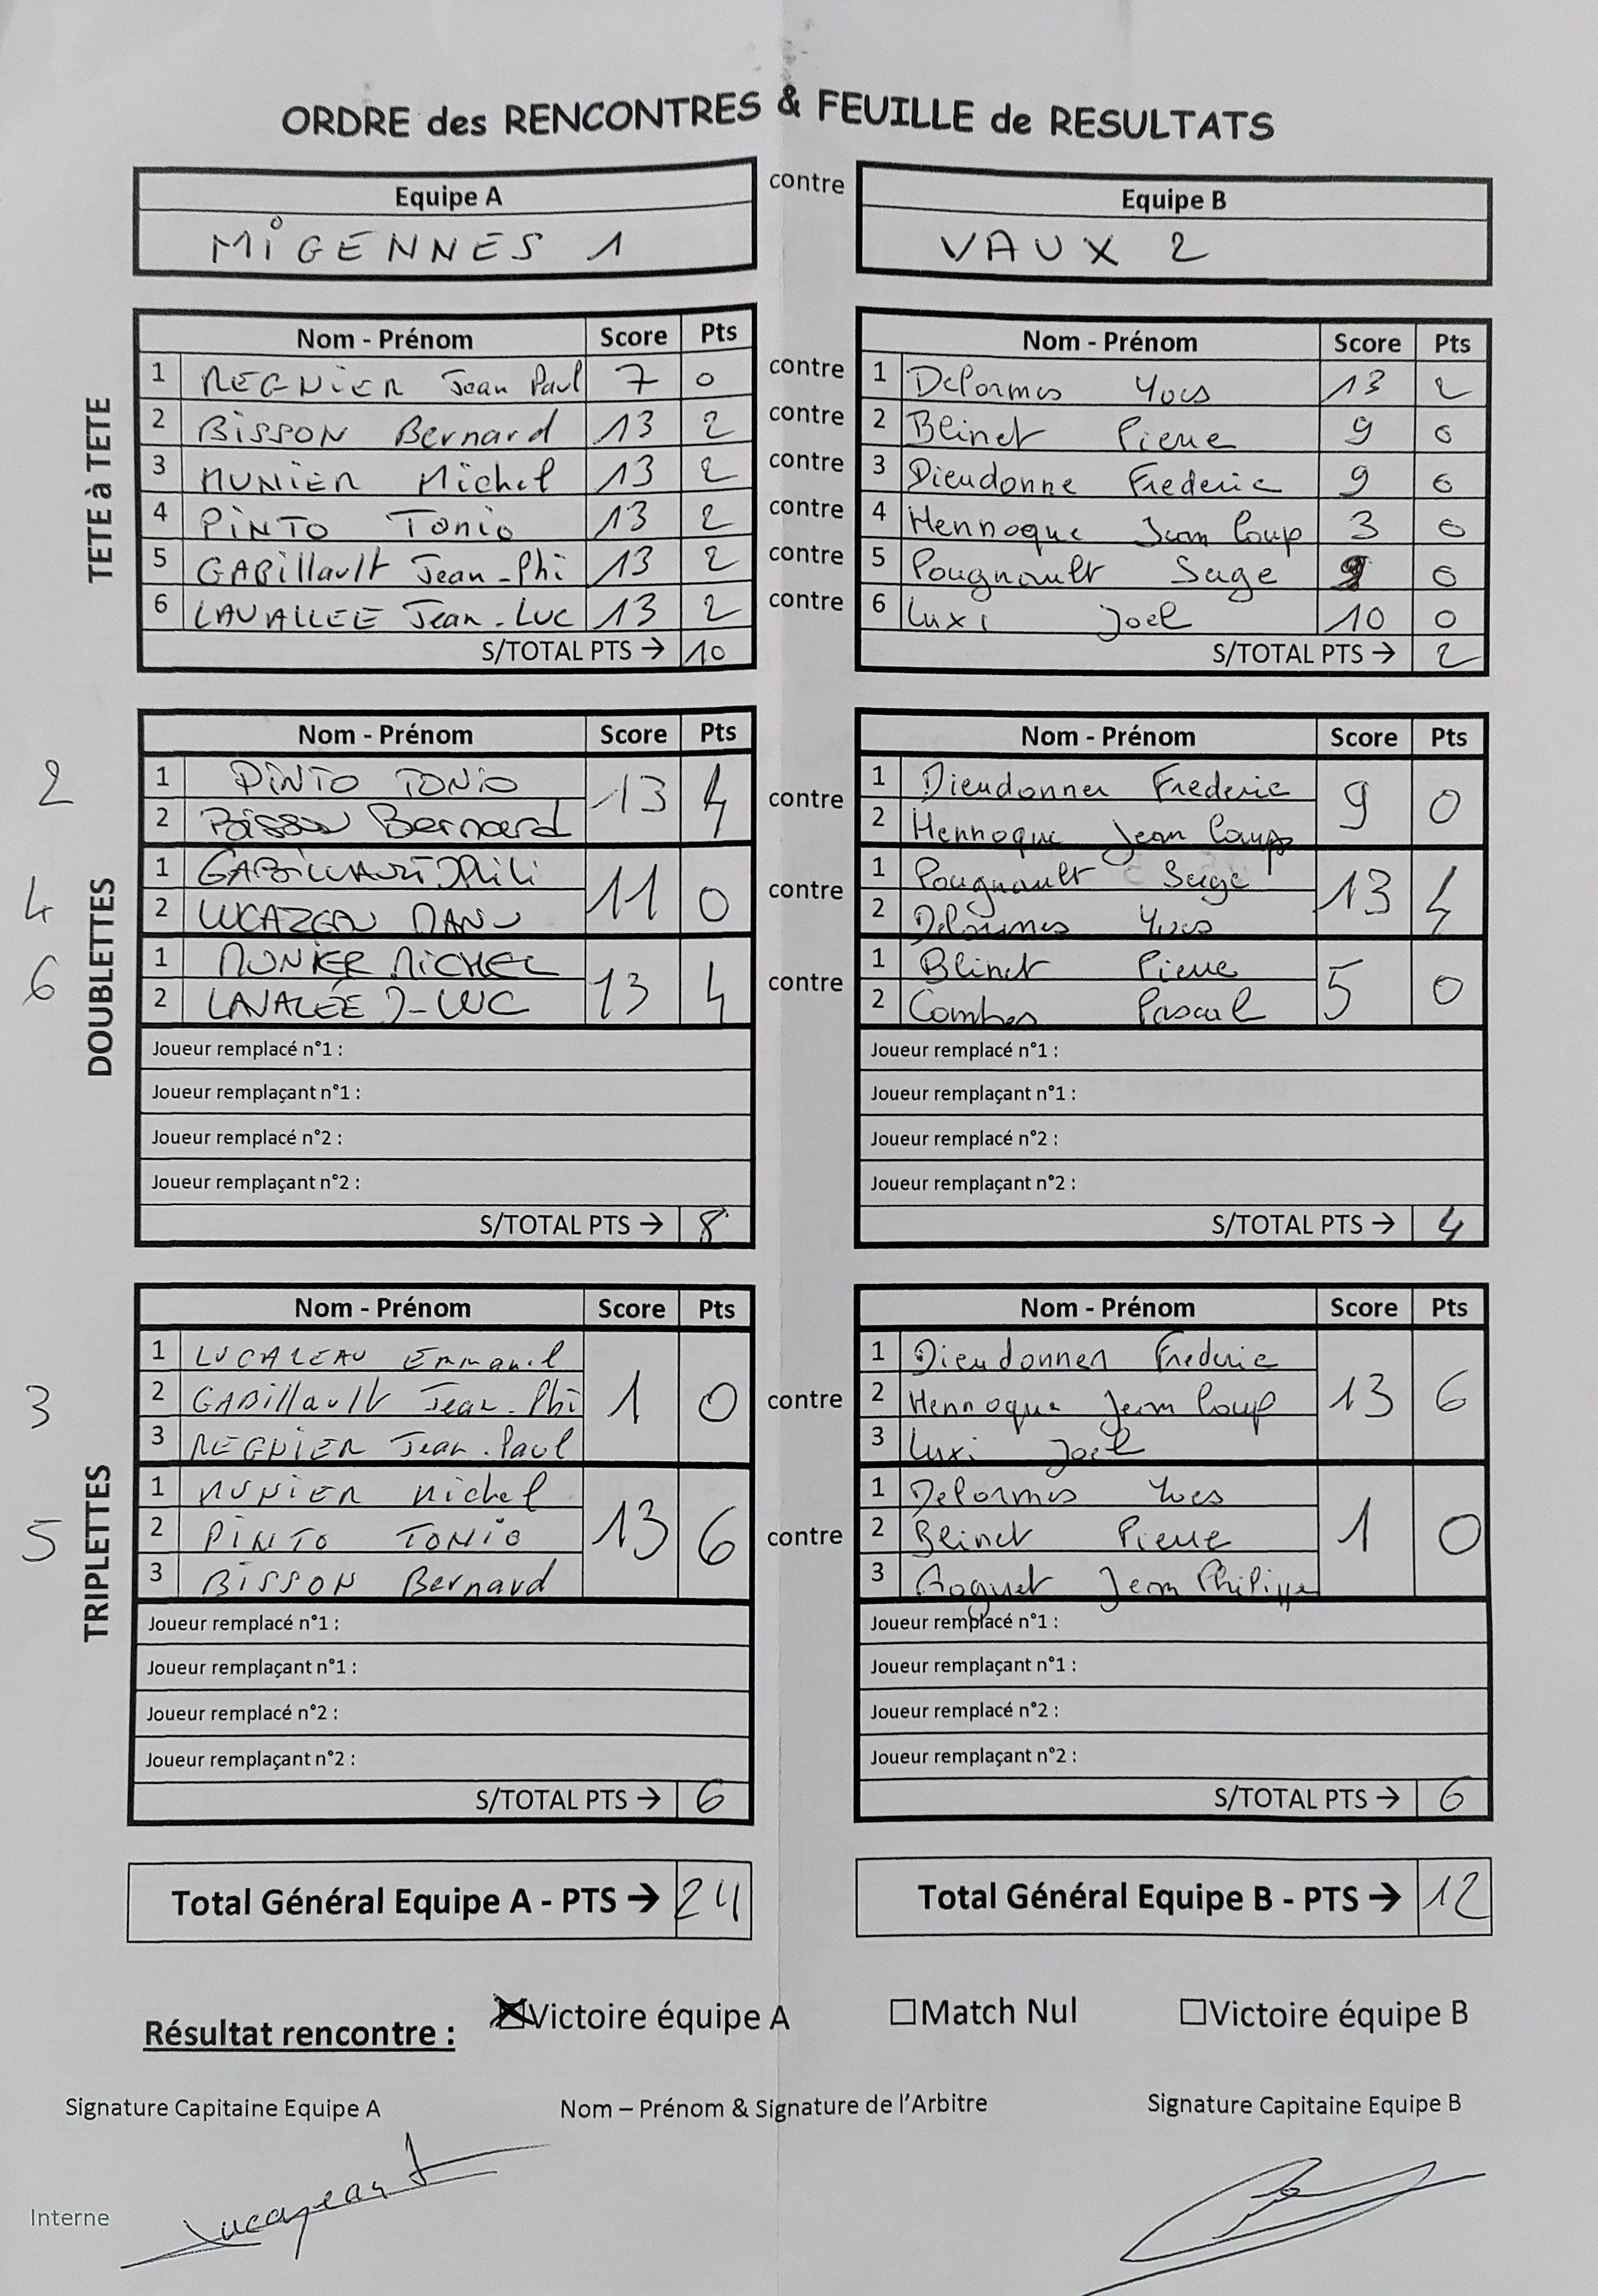 ORDRE des RENCONTRES & FEUILLE de RESULTATS
Equipe A contre Equipe B
MiGENNES 1 VAUX 2
TETE à TETE
Nom - Prénom Score Pts Nom - Prénom Score Pts
1 REGNIER Jean Paul 7 0 contre 1 Delormes Yves 13 2
2 BISSON Bernard 13 2 contre 2 Blinet Pierre 9 0
3 MUNIER Michel 13 2 contre 3 Dieudonne Frederic 9 0
4 PINTO Tonio 13 2 contre 4 Hennoque Jean Loup 3 0
5 GABillault Jean-Phi 13 2 contre 5 Pougnault Serge 0
6 LAVALLEE Jean-Luc 13 2 contre 6 Luxi Joel 10 0
S/TOTAL PTS → 10 S/TOTAL PTS → 2
DOUBLETTES
Nom - Prénom Score Pts Nom - Prénom Score Pts
2 1 PINTO TONIO 13 4 contre 1 Dieudonner Frederic 9 0
2 Bisson Bernard 2 Hennoque Jean Loup
4 1 GABILLAULT 11 0 contre 1 Pougnault Serge 13 4
2 LUCAZEAU MANU 2 Delormes Yves
6 1 MUNIER MICHEL 13 4 contre 1 Blinet Pierre 5 0
2 LAVALÉE J-LUC 2 Combes Pascal
Joueur remplacé n°1 : Joueur remplacé n°1 :
Joueur remplaçant n°1 : Joueur remplaçant n°1 :
Joueur remplacé n°2 : Joueur remplacé n°2 :
Joueur remplaçant n°2 : Joueur remplaçant n°2 :
S/TOTAL PTS → 8 S/TOTAL PTS → 4
TRIPLETTES
Nom - Prénom Score Pts Nom - Prénom Score Pts
1 LUCAZEAU 1 Dieudonner Frederic
3 2 GABillault Jean-Phi 1 0 contre 2 Hennoque Jean Loup 13 6
3 REGNIER Jean-Paul 3 Luxi Joel
1 MUNIER Michel 1 Delormes Yves
5 2 PINTO TONIO 13 6 contre 2 Blinet Pierre 1 0
3 BISSON Bernard 3 Jean Philippe
Joueur remplacé n°1 : Joueur remplacé n°1 :
Joueur remplaçant n°1 : Joueur remplaçant n°1 :
Joueur remplacé n°2 : Joueur remplacé n°2 :
Joueur remplaçant n°2 : Joueur remplaçant n°2 :
S/TOTAL PTS → 6 S/TOTAL PTS → 6
Total Général Equipe A - PTS → 24 Total Général Equipe B - PTS → 12
Résultat rencontre : ☒Victoire équipe A ☐Match Nul ☐Victoire équipe B
Signature Capitaine Equipe A Nom – Prénom & Signature de l'Arbitre Signature Capitaine Equipe B
Interne